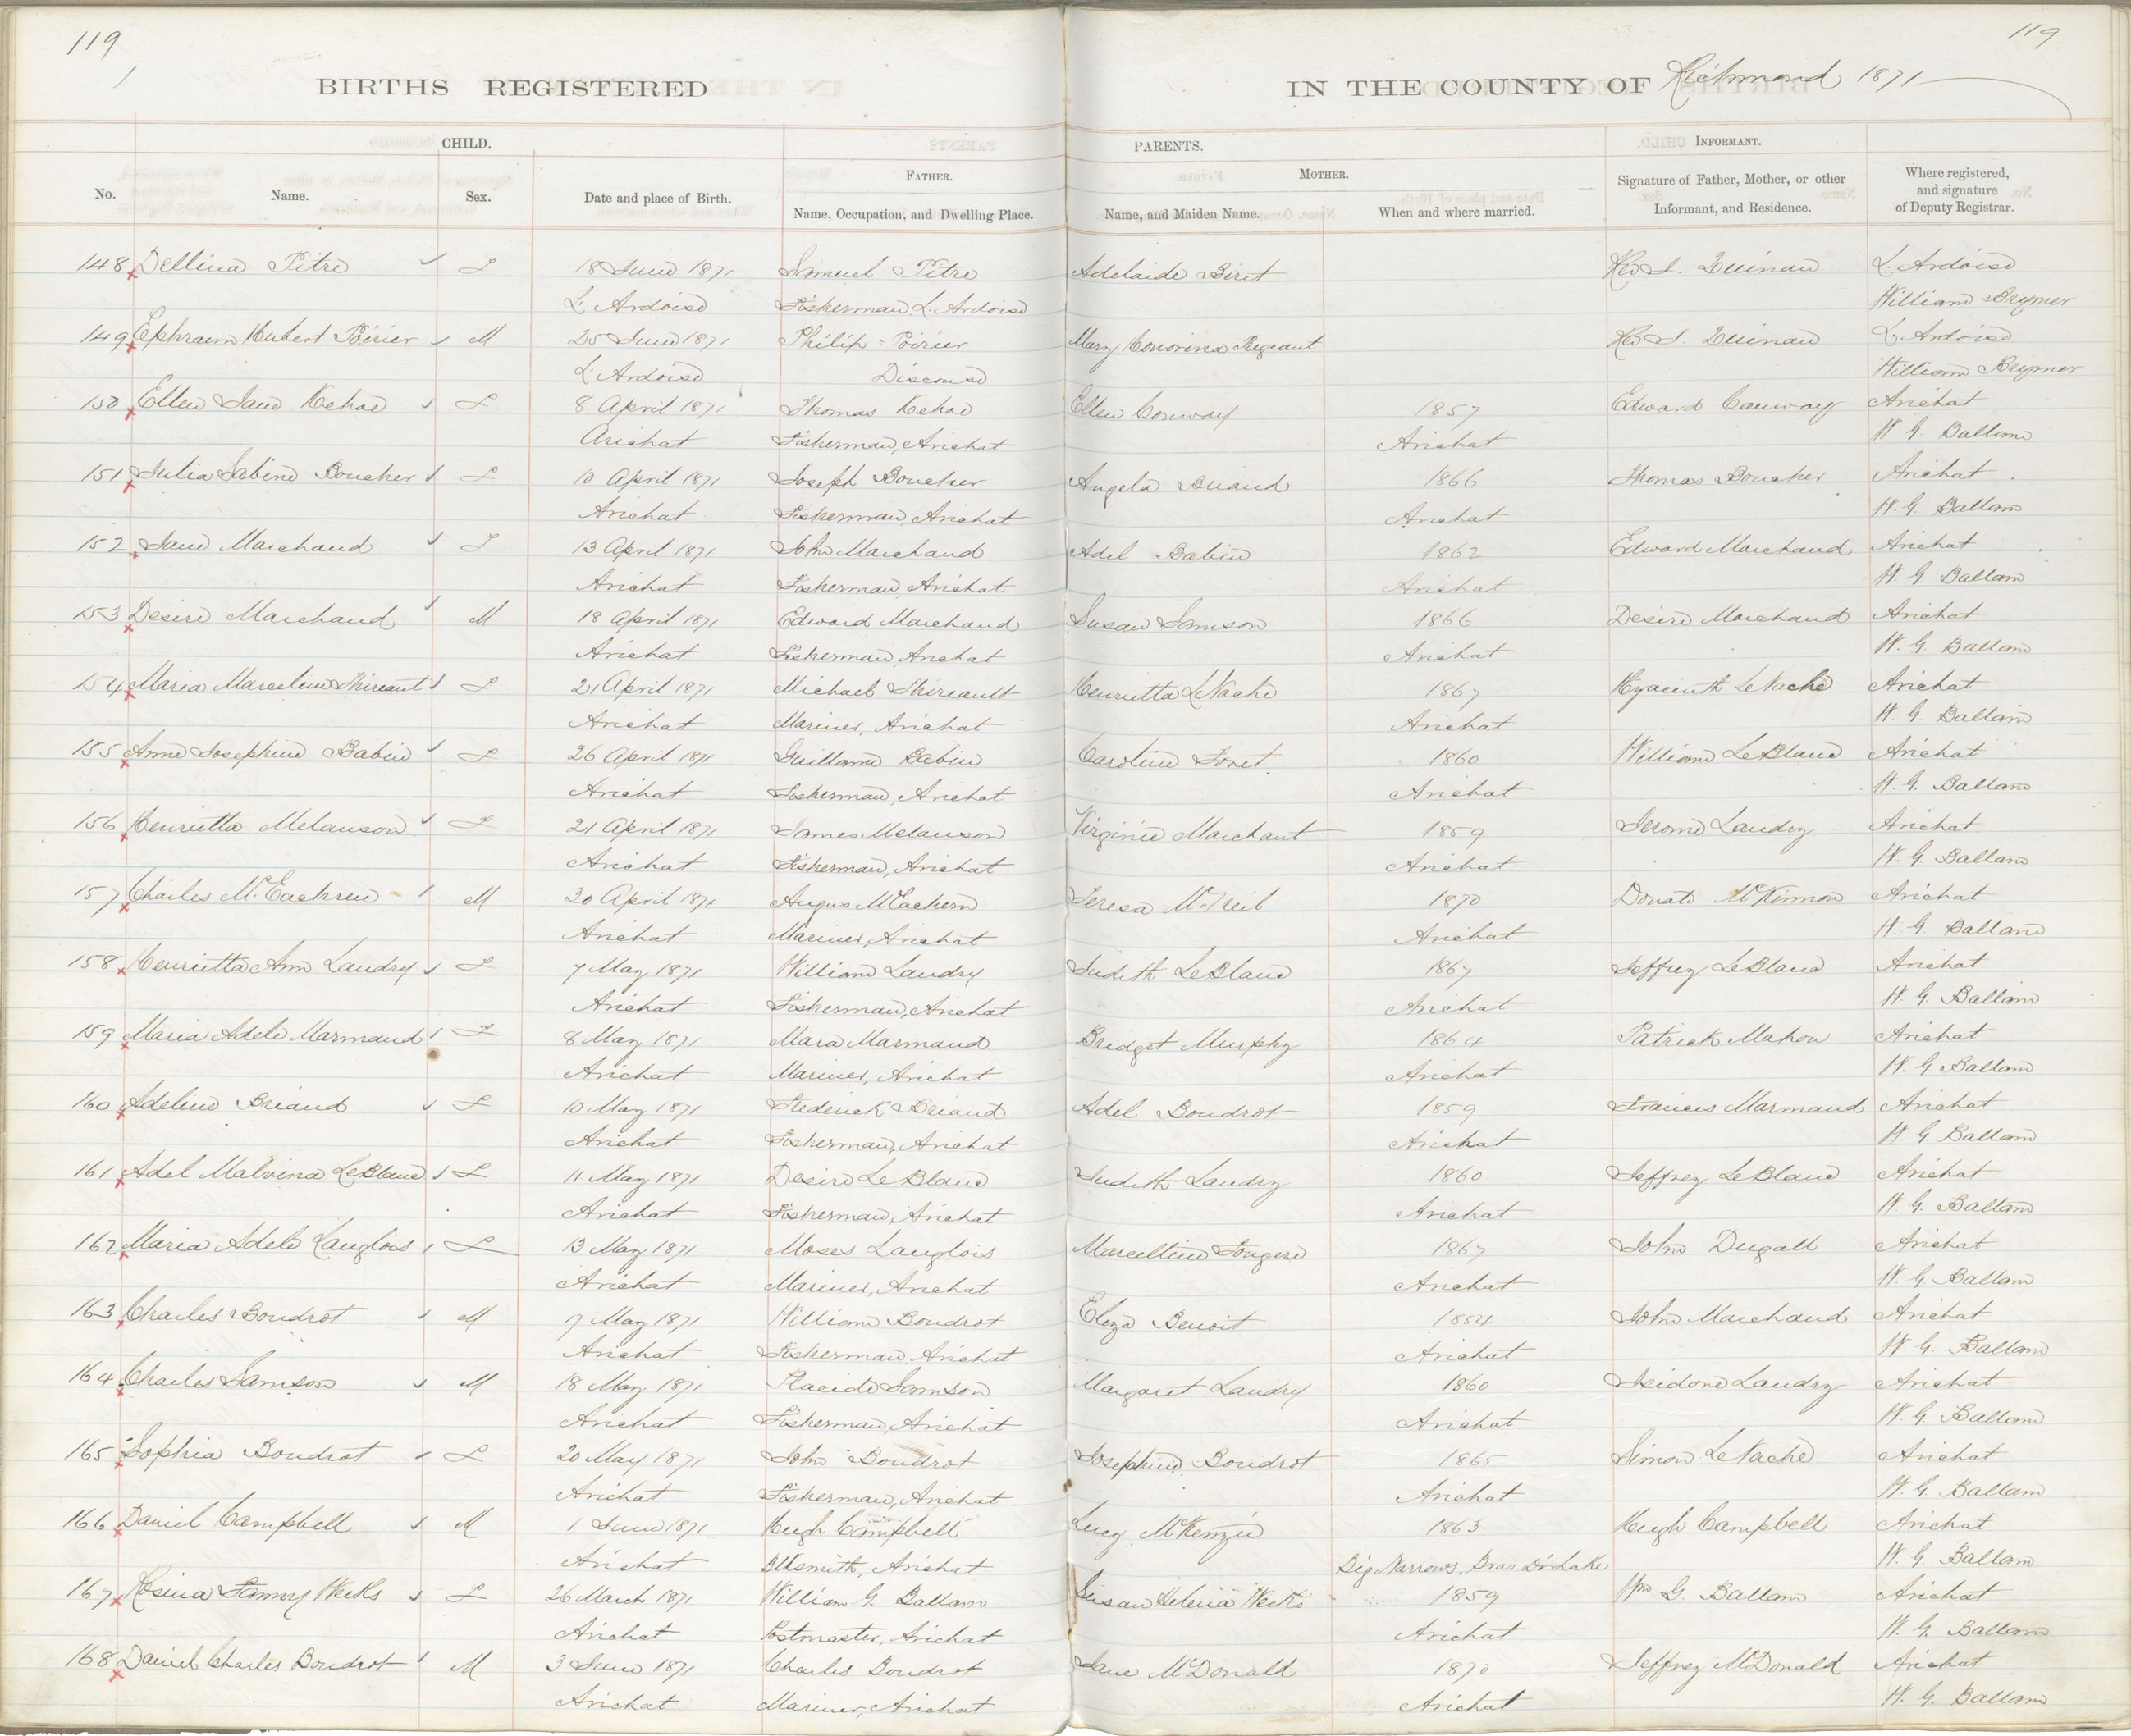 119
119
BIRTHS REGISTERED
IN THE COUNTY OF Richmond 1871
CHILD.
PARENTS.
INFORMANT.
FATHER.
MOTHER.
No.
Name.
Sex.
Date and place of Birth.
Name, Occupation, and Dwelling Place.
Name, and Maiden Name.
When and where married.
Signature of Father, Mother, or other
Informant, and Residence.
Where registered,
and signature
of Deputy Registrar.
148 Dellina Pitre F 18 June 1871 Samuel Pitre Adelaide Biret Rev J. Quinan L. Ardoise
L. Ardoise Fisherman L. Ardoise William Brymer
149 Ephraim Hubert Poirier M 25 June 1871 Philip Poirier Mary Honorina Rev J. Quinan L. Ardoise
L. Ardoise Discouse William Brymer
150 Ellen Jane Kehoe F 8 April 1871 Thomas Kehoe Ellen Conway 1857 Edward Conway Arichat
Arichat Fisherman, Arichat Arichat W. G. Ballam
151 Julia Sabine Boucher F 10 April 1871 Joseph Boucher Angela Briand 1866 Thomas Boucher Arichat
Arichat Fisherman, Arichat Arichat W. G. Ballam
152 Jane Marchand F 13 April 1871 John Marchand Adel Babin 1862 Edward Marchand Arichat
Arichat Fisherman, Arichat Arichat W. G. Ballam
153 Desire Marchand M 18 April 1871 Edward Marchand Susan Samson 1866 Desire Marchand Arichat
Arichat Fisherman, Arichat Arichat W. G. Ballam
154 Maria Marceline Thireault F 21 April 1871 Michael Thireault Henrietta LeVache 1867 Hyacinth LeVache Arichat
Arichat Mariner, Arichat Arichat W. G. Ballam
155 Anne Josephine Babin F 26 April 1871 Guillame Babin Caroline Foret 1860 William LeBlanc Arichat
Arichat Fisherman, Arichat Arichat W. G. Ballam
156 Henrietta Melanson F 21 April 1871 James Melanson Virginie Marchant 1859 Jerome Landry Arichat
Arichat Fisherman, Arichat Arichat W. G. Ballam
157 Charles McEachren M 30 April 1871 Angus McEachern Teresa McNeil 1870 Donald McKinnon Arichat
Arichat Mariner, Arichat Arichat W. G. Ballam
158 Henrietta Ann Landry F 7 May 1871 William Landry Judith LeBlanc 1867 Jeffrey LeBlanc Arichat
Arichat Fisherman, Arichat Arichat W. G. Ballam
159 Maria Adele Marmaud F 8 May 1871 Mara Marmaud Bridget Murphy 1864 Patrick Mahon Arichat
Arichat Mariner, Arichat Arichat W. G. Ballam
160 Adeline Briand F 10 May 1871 Frederick Briand Adel Boudrot 1859 Frances Marmaud Arichat
Arichat Fisherman, Arichat Arichat W. G. Ballam
161 Adel Malvina LeBlanc F 11 May 1871 Desire LeBlanc Judith Landry 1860 Jeffrey LeBlanc Arichat
Arichat Fisherman, Arichat Arichat W. G. Ballam
162 Maria Adele Langlois F 13 May 1871 Moses Langlois Marcelline Fougere 1867 John Dugall Arichat
Arichat Mariner, Arichat Arichat W. G. Ballam
163 Charles Boudrot M 17 May 1871 William Boudrot Eliza Benoit 1854 John Marchand Arichat
Arichat Fisherman, Arichat Arichat W. G. Ballam
164 Charles Samson M 18 May 1871 Placide Samson Margaret Landry 1860 Isidore Landry Arichat
Arichat Fisherman, Arichat Arichat W. G. Ballam
165 Sophia Boudrot F 20 May 1871 John Boudrot Josephine Boudrot 1865 Simon LeVache Arichat
Arichat Fisherman, Arichat Arichat W. G. Ballam
166 Daniel Campbell M 1 June 1871 Hugh Campbell Lucy McKenzie 1863 Hugh Campbell Arichat
Arichat Blksmith, Arichat Big Narrows, Bras D'or Lake W. G. Ballam
167 Rosina Fanny Weeks F 26 March 1871 William G. Ballam Susan Helena Weeks 1859 Wm G. Ballam Arichat
Arichat Postmaster, Arichat Arichat W. G. Ballam
168 Daniel Charles Boudrot M 3 June 1871 Charles Boudrot Jane McDonald 1870 Jeffrey McDonald Arichat
Arichat Mariner, Arichat Arichat W. G. Ballam